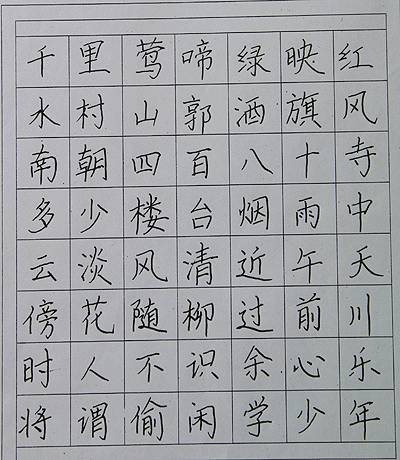 千里莺啼绿映红
水村山郭酒旗风
南朝四百八十寺
多少楼台烟雨中
云淡风清近午天
傍花随柳过前川
时人不识余心乐
将谓偷闲学少年